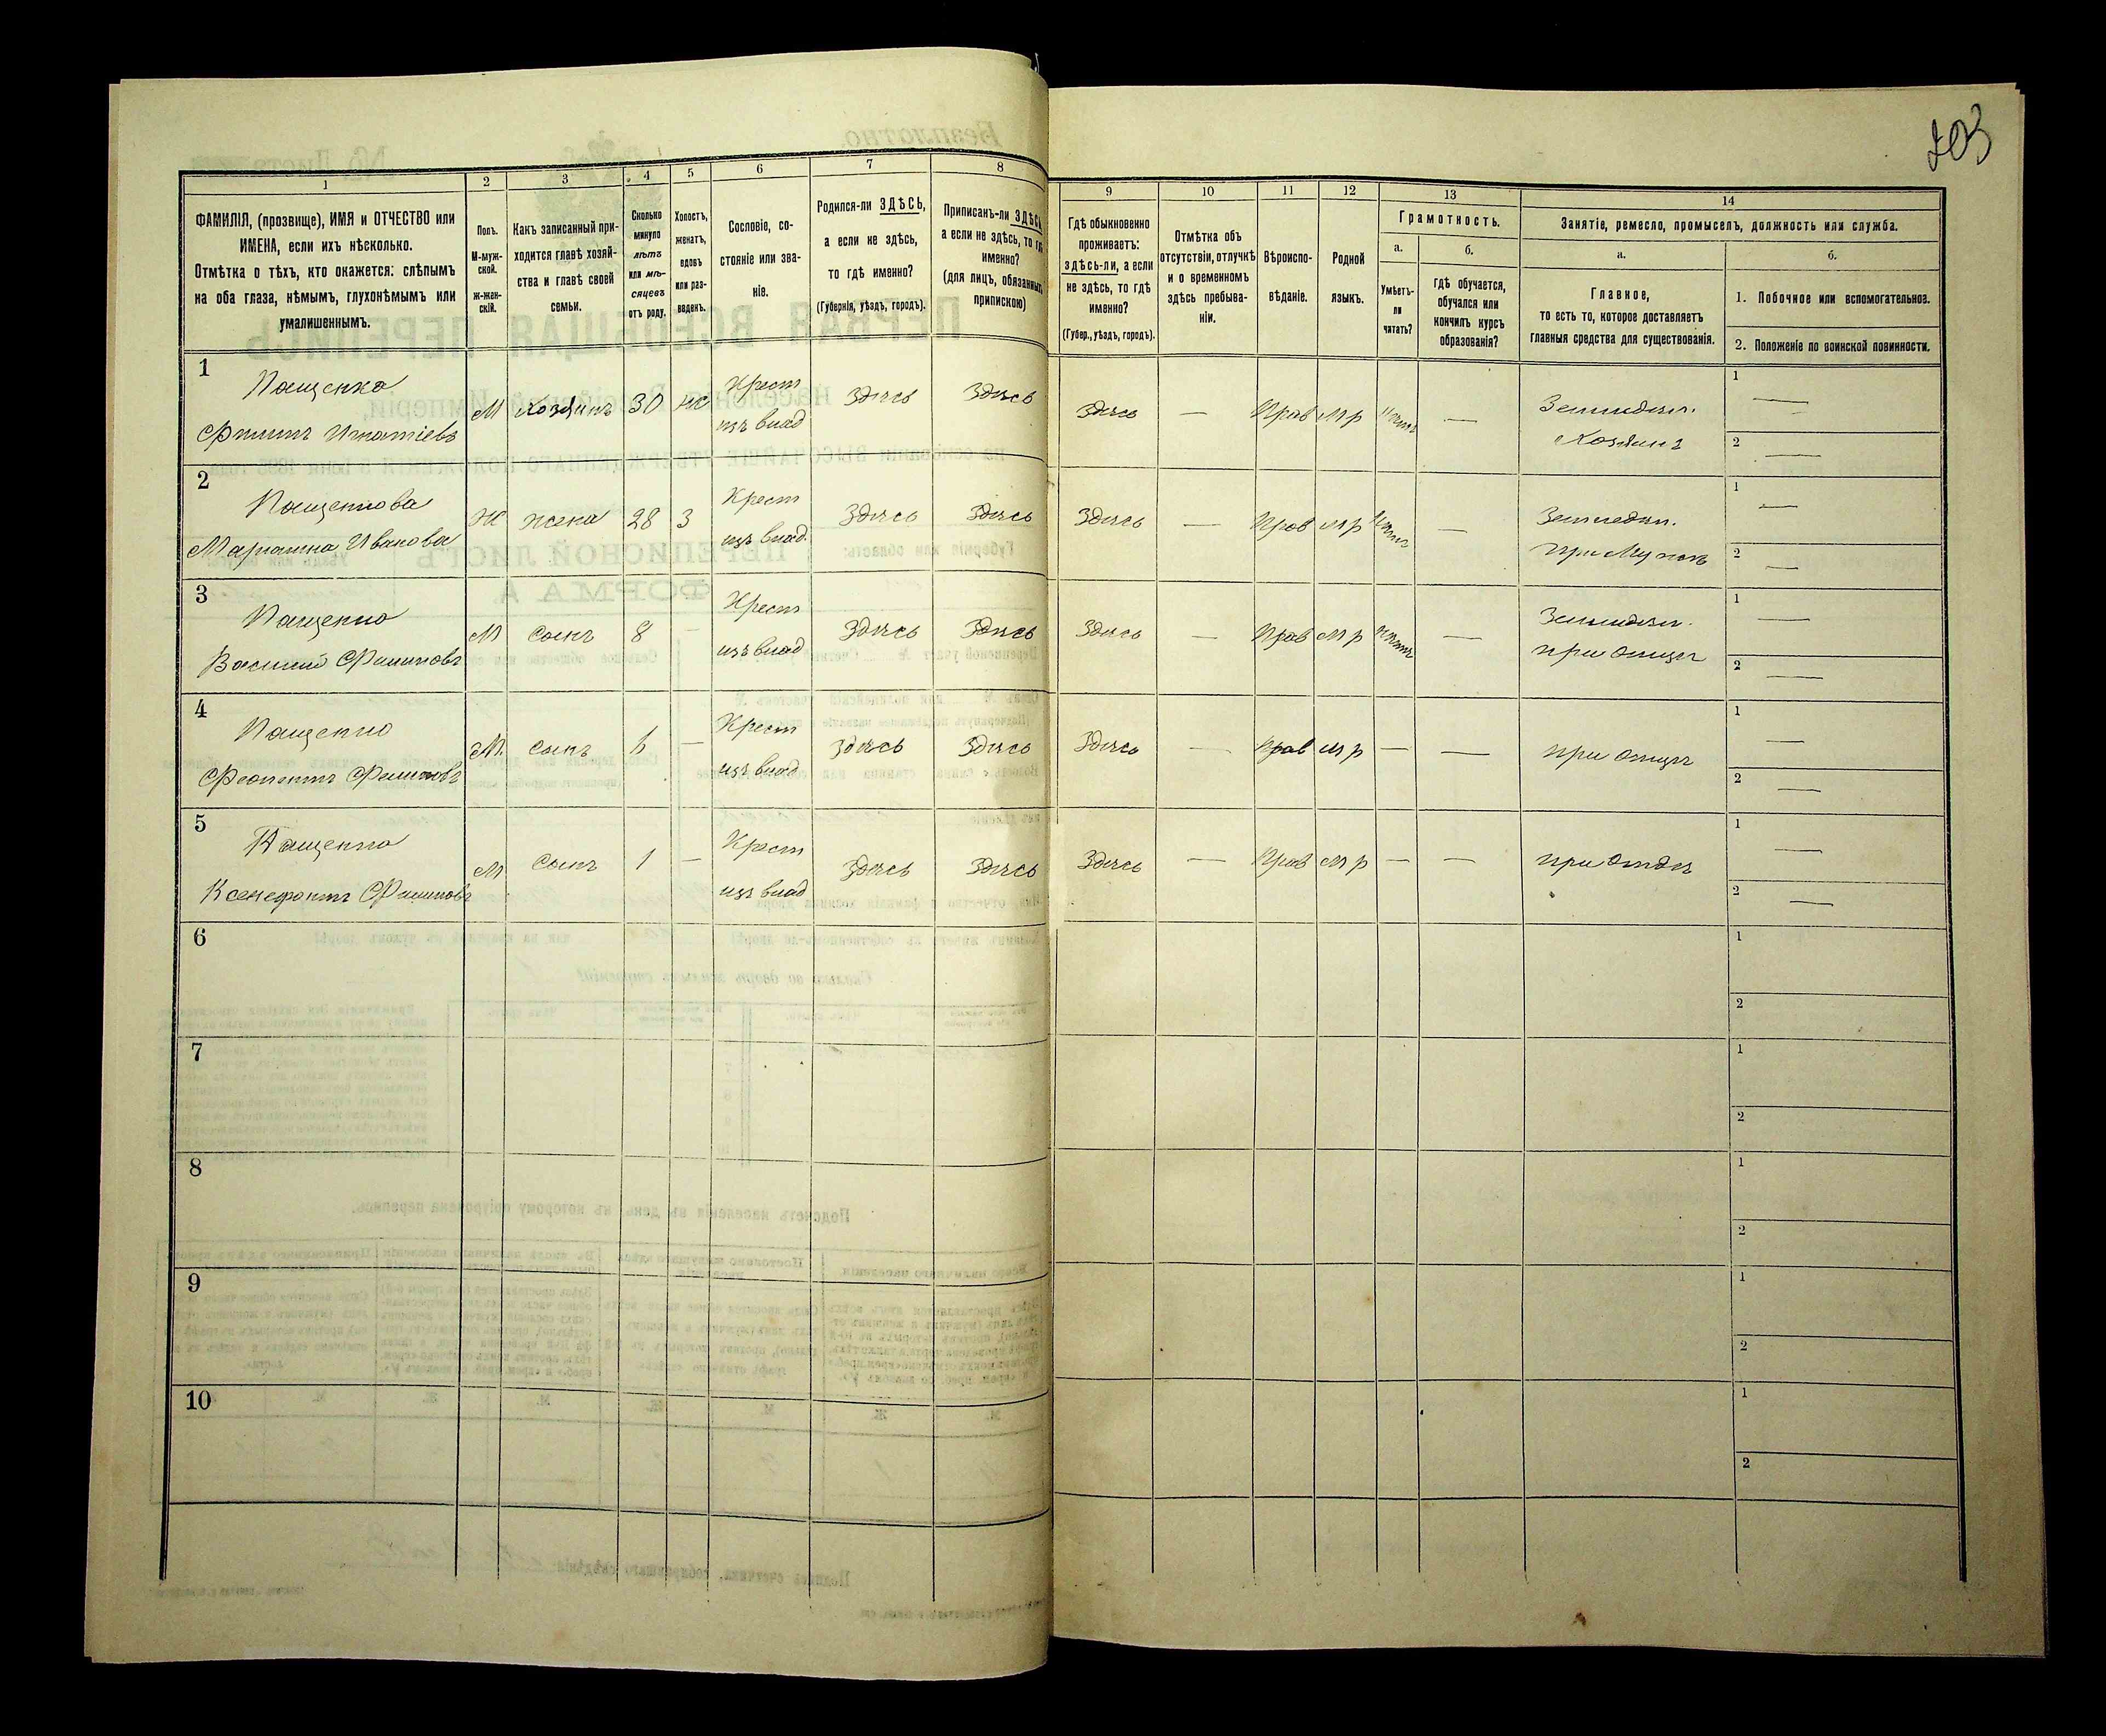 203
1
2
3
4
5
6
7
8
9
10
11
12
13
14
ФАМИЛІЯ, (прозвище), ИМЯ и ОТЧЕСТВО или
ИМЕНА, если ихъ нѣсколько.
Отмѣтка о тѣхъ, кто окажется: слѣпымъ
на оба глаза, нѣмымъ, глухонѣмымъ или
умалишеннымъ.
Полъ.
М-муж-
ской.
Ж-жен-
скій.
Какъ записанный при-
ходится главѣ хозяй-
ства и главѣ своей
семьи.
Сколько
минуло
лѣтъ
или мѣ-
сяцевъ
отъ роду.
Холостъ,
женатъ,
вдовъ
или раз-
веденъ.
Сословіе, со-
стояніе или зва-
ніе.
Родился-ли ЗДѢСЬ,
а если не здѣсь,
то гдѣ именно?
(Губернія, уѣздъ, городъ).
Приписанъ-ли ЗДѢСЬ,
а если не здѣсь, то гдѣ
именно?
(для лицъ, обязанныхъ
припискою)
Гдѣ обыкновенно
проживаетъ:
здѣсь-ли, а если
не здѣсь, то гдѣ
именно?
(Губер., уѣздъ, городъ).
Отмѣтка объ
отсутствіи, отлучкѣ
и о временномъ
здѣсь пребыва-
ніи.
Вѣроиспо-
вѣданіе.
Родной
языкъ.
Грамотность.
а.
Умѣетъ-
ли
читать?
б.
Гдѣ обучается,
обучался или
кончилъ курсъ
образованія?
Занятіе, ремесло, промыселъ, должность или служба.
а.
Главное,
то есть то, которое доставляетъ
главныя средства для существованія.
б.
1. Побочное или вспомогательное.
2. Положеніе по воинской повинности.
1
Пащенко
Филипъ Игнатіевъ
М Хозяинъ 30 ж Крест
изъ влад
Здѣсь Здѣсь Здѣсь — Прав М р нѣтъ — Земледѣл.
Хозяинъ
1 —
2 —
2
Пащенкова
Марфина Иванова
Ж жена 28 З Крест
изъ влад.
Здѣсь Здѣсь Здѣсь — Прав м р нѣтъ — Земледѣл.
при Мужѣ
1 —
2 —
3
Пащенко
Василий Филиповъ
М Сынъ 8 — Крест
изъ влад
Здѣсь Здѣсь Здѣсь — Прав М р нѣтъ — Земледѣл.
при Отцѣ
1 —
2 —
4
Пащенко
Феопентъ Филиповъ
М. Сынъ — Крест
изъ влад
Здѣсь Здѣсь Здѣсь — Прав м р — — при Отцѣ
1 —
2 —
5
Пащенко
Ксенефонтъ Филиповъ
М Сынъ 1 — Крест
изъ влад
Здѣсь Здѣсь Здѣсь — Прав М р — — при Отцѣ
1 —
2 —
6
1
2
7
1
2
8
1
2
9
1
2
10
1
2